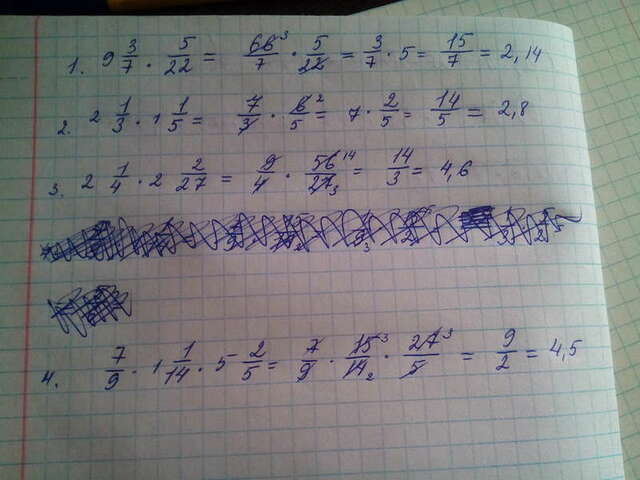 1. 9 3/7 · 5/22 = 66 3/7 · 5/22 = 3/7 · 5 = 15/7 = 2,14
2. 2 1/3 · 1 1/5 = 7/3 · 6 2/5 = 7 · 2/5 = 14/5 = 2,8
3. 2 1/4 · 2 2/27 = 9/4 · 56 14/27 3 = 14/3 = 4,6
4. 7/9 · 1 1/14 · 5 2/5 = 7/9 · 15 3/14 2 · 27 3/5 = 9/2 = 4,5